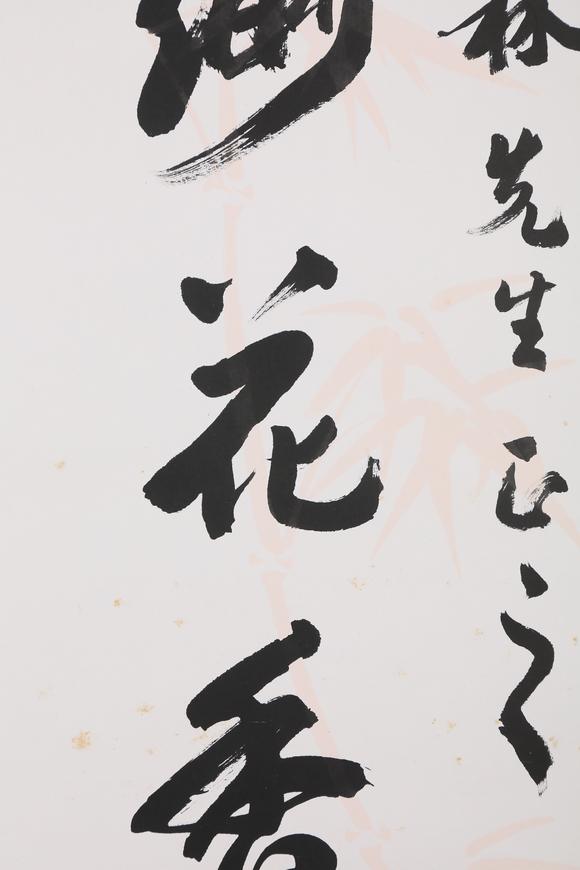 林先生正之
花香